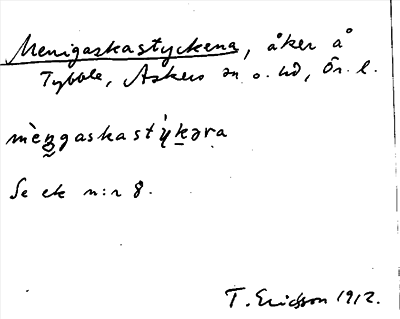 Menigaskastyckena, åker å
Tybble, Askers sn o. hd, Ör. l.
mèŋgaskastỳkəra
Se ek n:r 8.
T. Ericsson 1912.